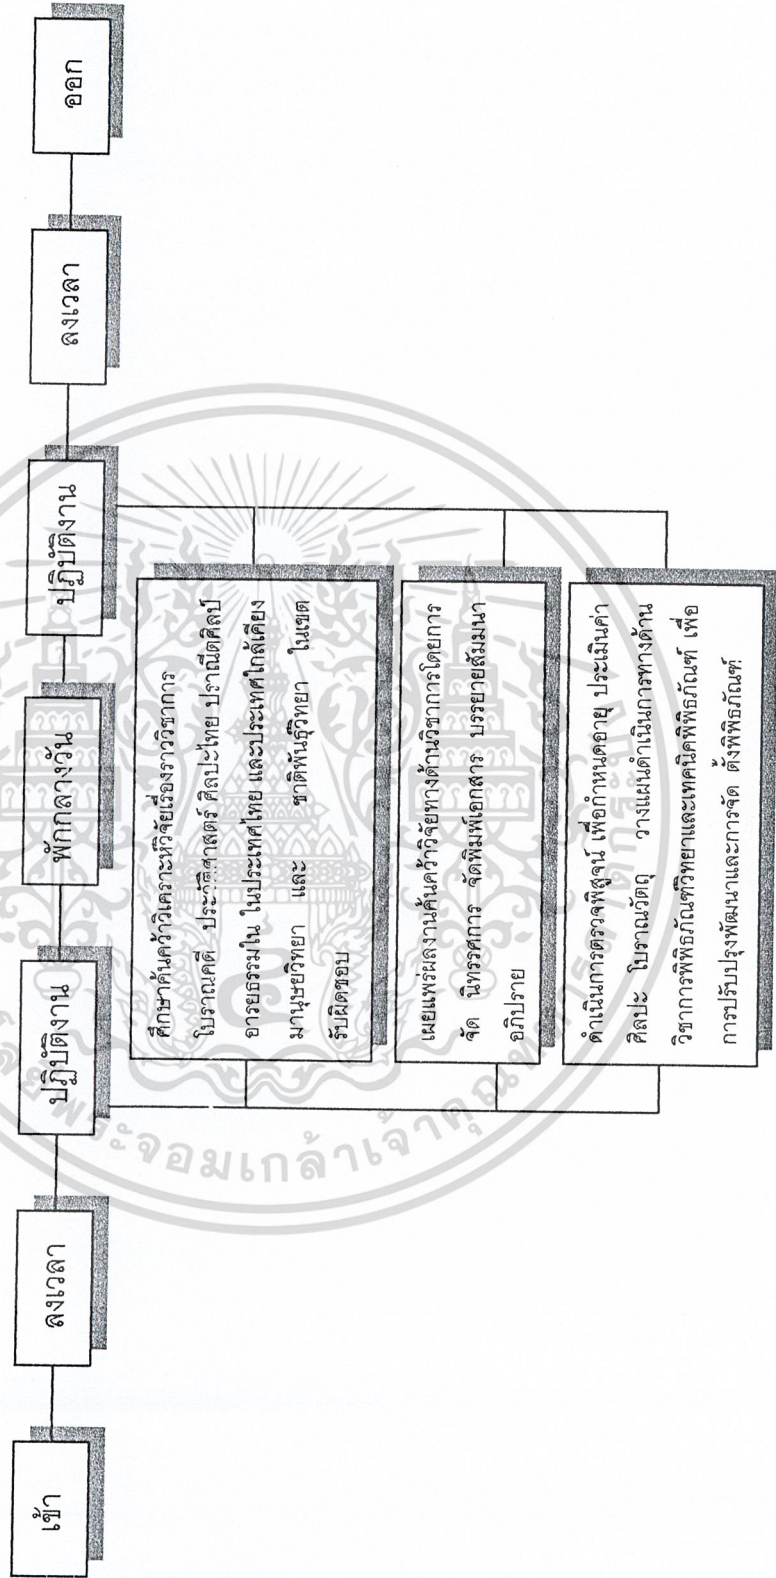 เข้า
ลงเวลา
ปฏิบัติงาน
พักกลางวัน
ปฏิบัติงาน
ลงเวลา
ออก
ศึกษาค้นคว้าวิเคราะห์วิจัยเรื่องราววิชาการ
โบราณคดี ประวัติศาสตร์ ศิลปะไทย ปราณีตศิลป์
อารยธรรมใน ในประเทศไทย และประเทศใกล้เคียง
มานุษยวิทยา และ ชาติพันธุ์วิทยา ในเขต
รับผิดชอบ
เผยแพร่ผลงานค้นคว้าวิจัยทางด้านวิชาการโดยการ
จัด นิทรรศการ จัดพิมพ์เอกสาร บรรยายสัมมนา
อภิปราย
ดำเนินการตรวจพิสูจน์ เพื่อกำหนดอายุ ประเมินค่า
ศิลปะ โบราณวัตถุ วางแผนดำเนินการทางด้าน
วิชาการพิพิธภัณฑ์วิทยาและเทคนิคพิพิธภัณฑ์ เพื่อ
การปรับปรุงพัฒนาและการจัด ตั้งพิพิธภัณฑ์
พระจอมเกล้าเจ้าคุณทหาร